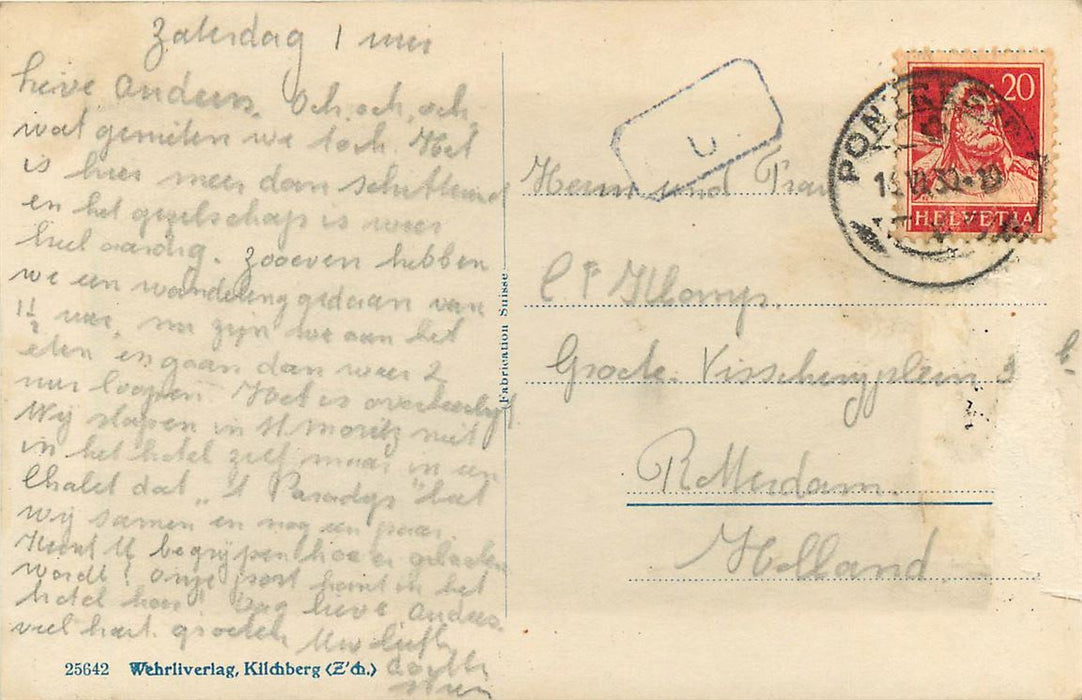 Zaterdag 1 uur
lieve Ouders. Och, och, och
wat genieten we toch. Het
is hier meer dan schitterend
en het gezelschap is weer
heel aardig. Zooeven hebben
we een wandeling gedaan van
1½ uur, nu zijn we aan het
eten en gaan dan weer 2
uur loopen. Het is overheerlijk
Wij slapen in St Moritz niet
in het hotel zelf maar in een
Chalet dat "'t Paradijs" heet
wij samen en nog een paar.
Kunt U begrijpen hoe er gelachen
wordt! Onze post komt in het
hotel hoor! Dag lieve Ouders.
veel hart. groeten Uw liefh.
25642 Wehrliverlag, Kilchberg (Z'ch.)
Fabrication Suisse
U
20
HELVETIA
PONTRESINA
Herrn und Frau
Klomps.
Groote Visscherijplein 3 b.
Rotterdam.
Holland.